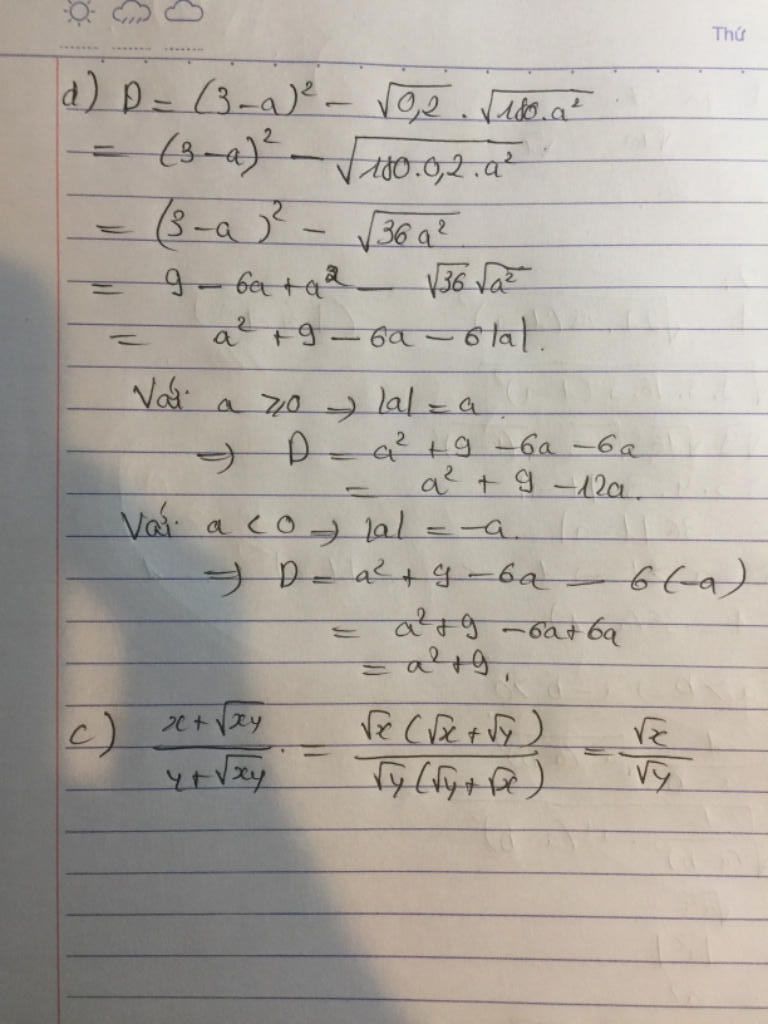 Thứ
d) D = (3-a)² - √0,2 . √180.a²
= (3-a)² - √180.0,2.a²
= (3-a)² - √36a²
= 9 - 6a + a² - √36 √a²
= a² + 9 - 6a - 6|a|.
Với a ≥ 0 → |a| = a
⇒ D = a² + 9 - 6a - 6a
= a² + 9 - 12a.
Với a < 0 ⇒ |a| = -a.
⇒ D = a² + 9 - 6a - 6(-a)
= a² + 9 - 6a + 6a
= a² + 9.
c) (x + √xy)/(y + √xy) = (√x(√x + √y))/(√y(√y + √x)) = √x/√y